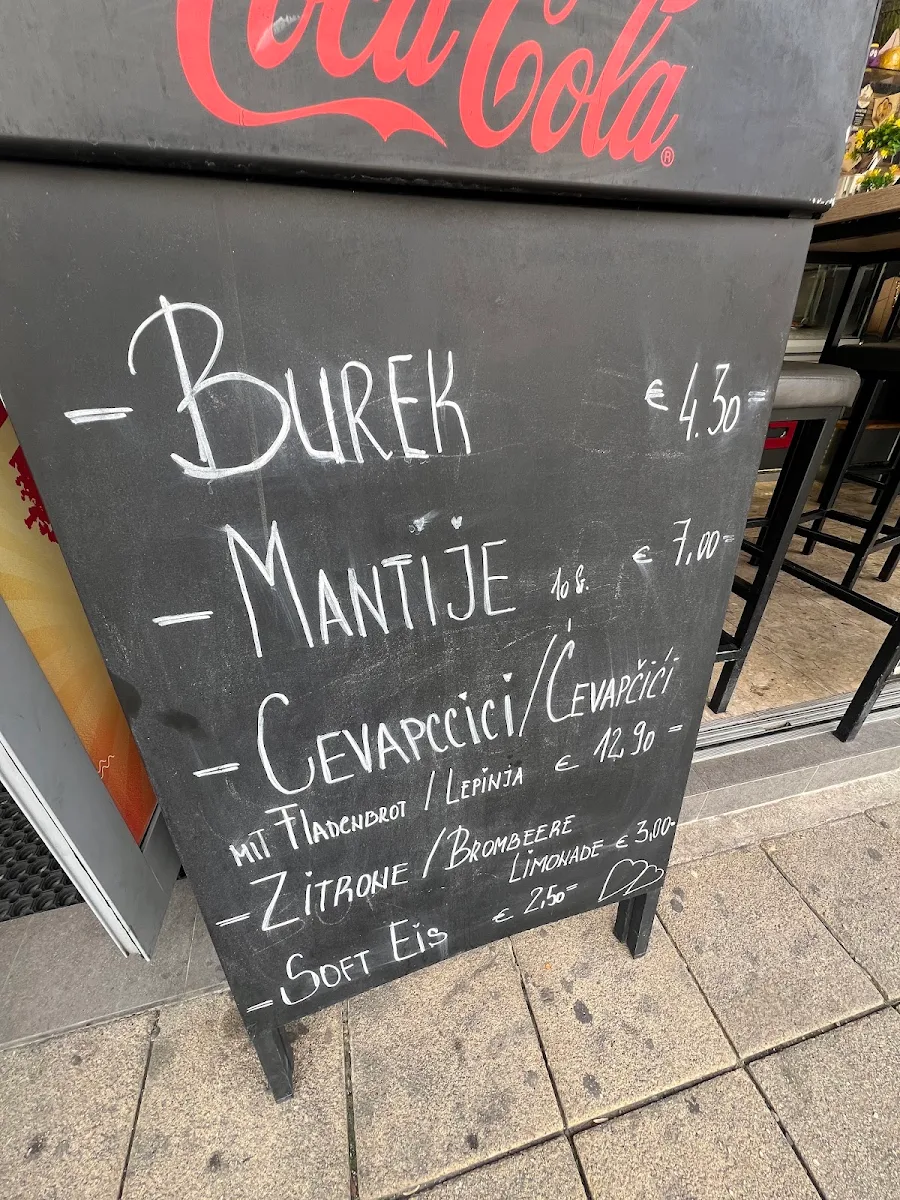 Coca Cola®
- BUREK € 4.30=
- MANTIJE € 7,00=
- CEVAPCCICI/ĆEVAPČIĆI
MIT FLADENBROT / LEPINJA € 12,90=
- ZITRONE / BROMBEERE
LIMONADE € 3,00-
- SOFT EIS € 2,50=